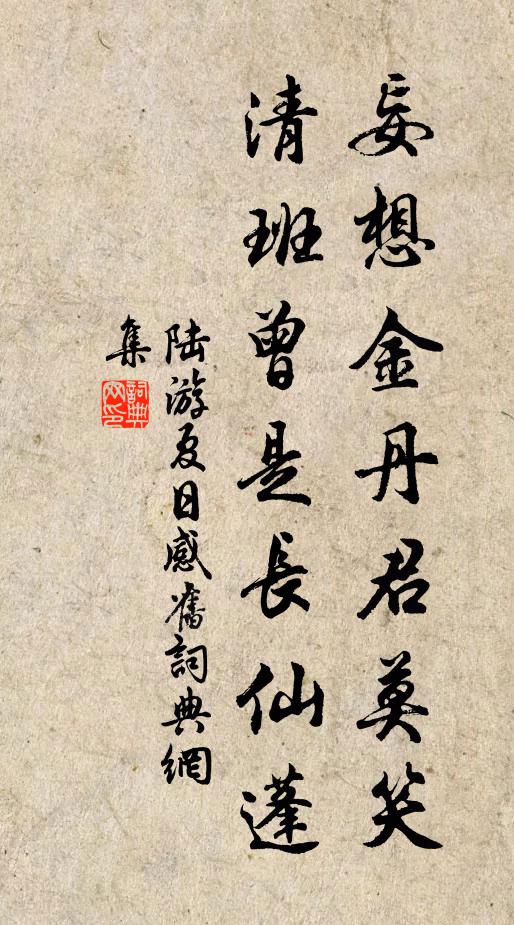 妄想金丹君莫笑
清班曾是長仙蓬
陆游夏日感舊詞典網
集
詞典網印